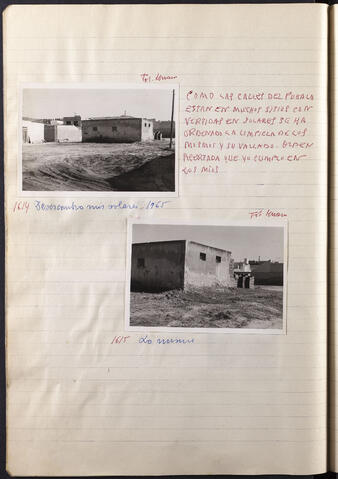 COMO LAS CALLES DEL PUEBLO
ESTAN EN MUCHOS SITIOS CON
VERTIDAS EN SOLARES SE HA
ORDENADO LA LIMPIEZA DE LOS
MISMOS Y SU VALLADO.
QUE YO CUMPLO EN
LOS MIOS
1614 Desescombro mis solares. 1965
1615 Lo mismo